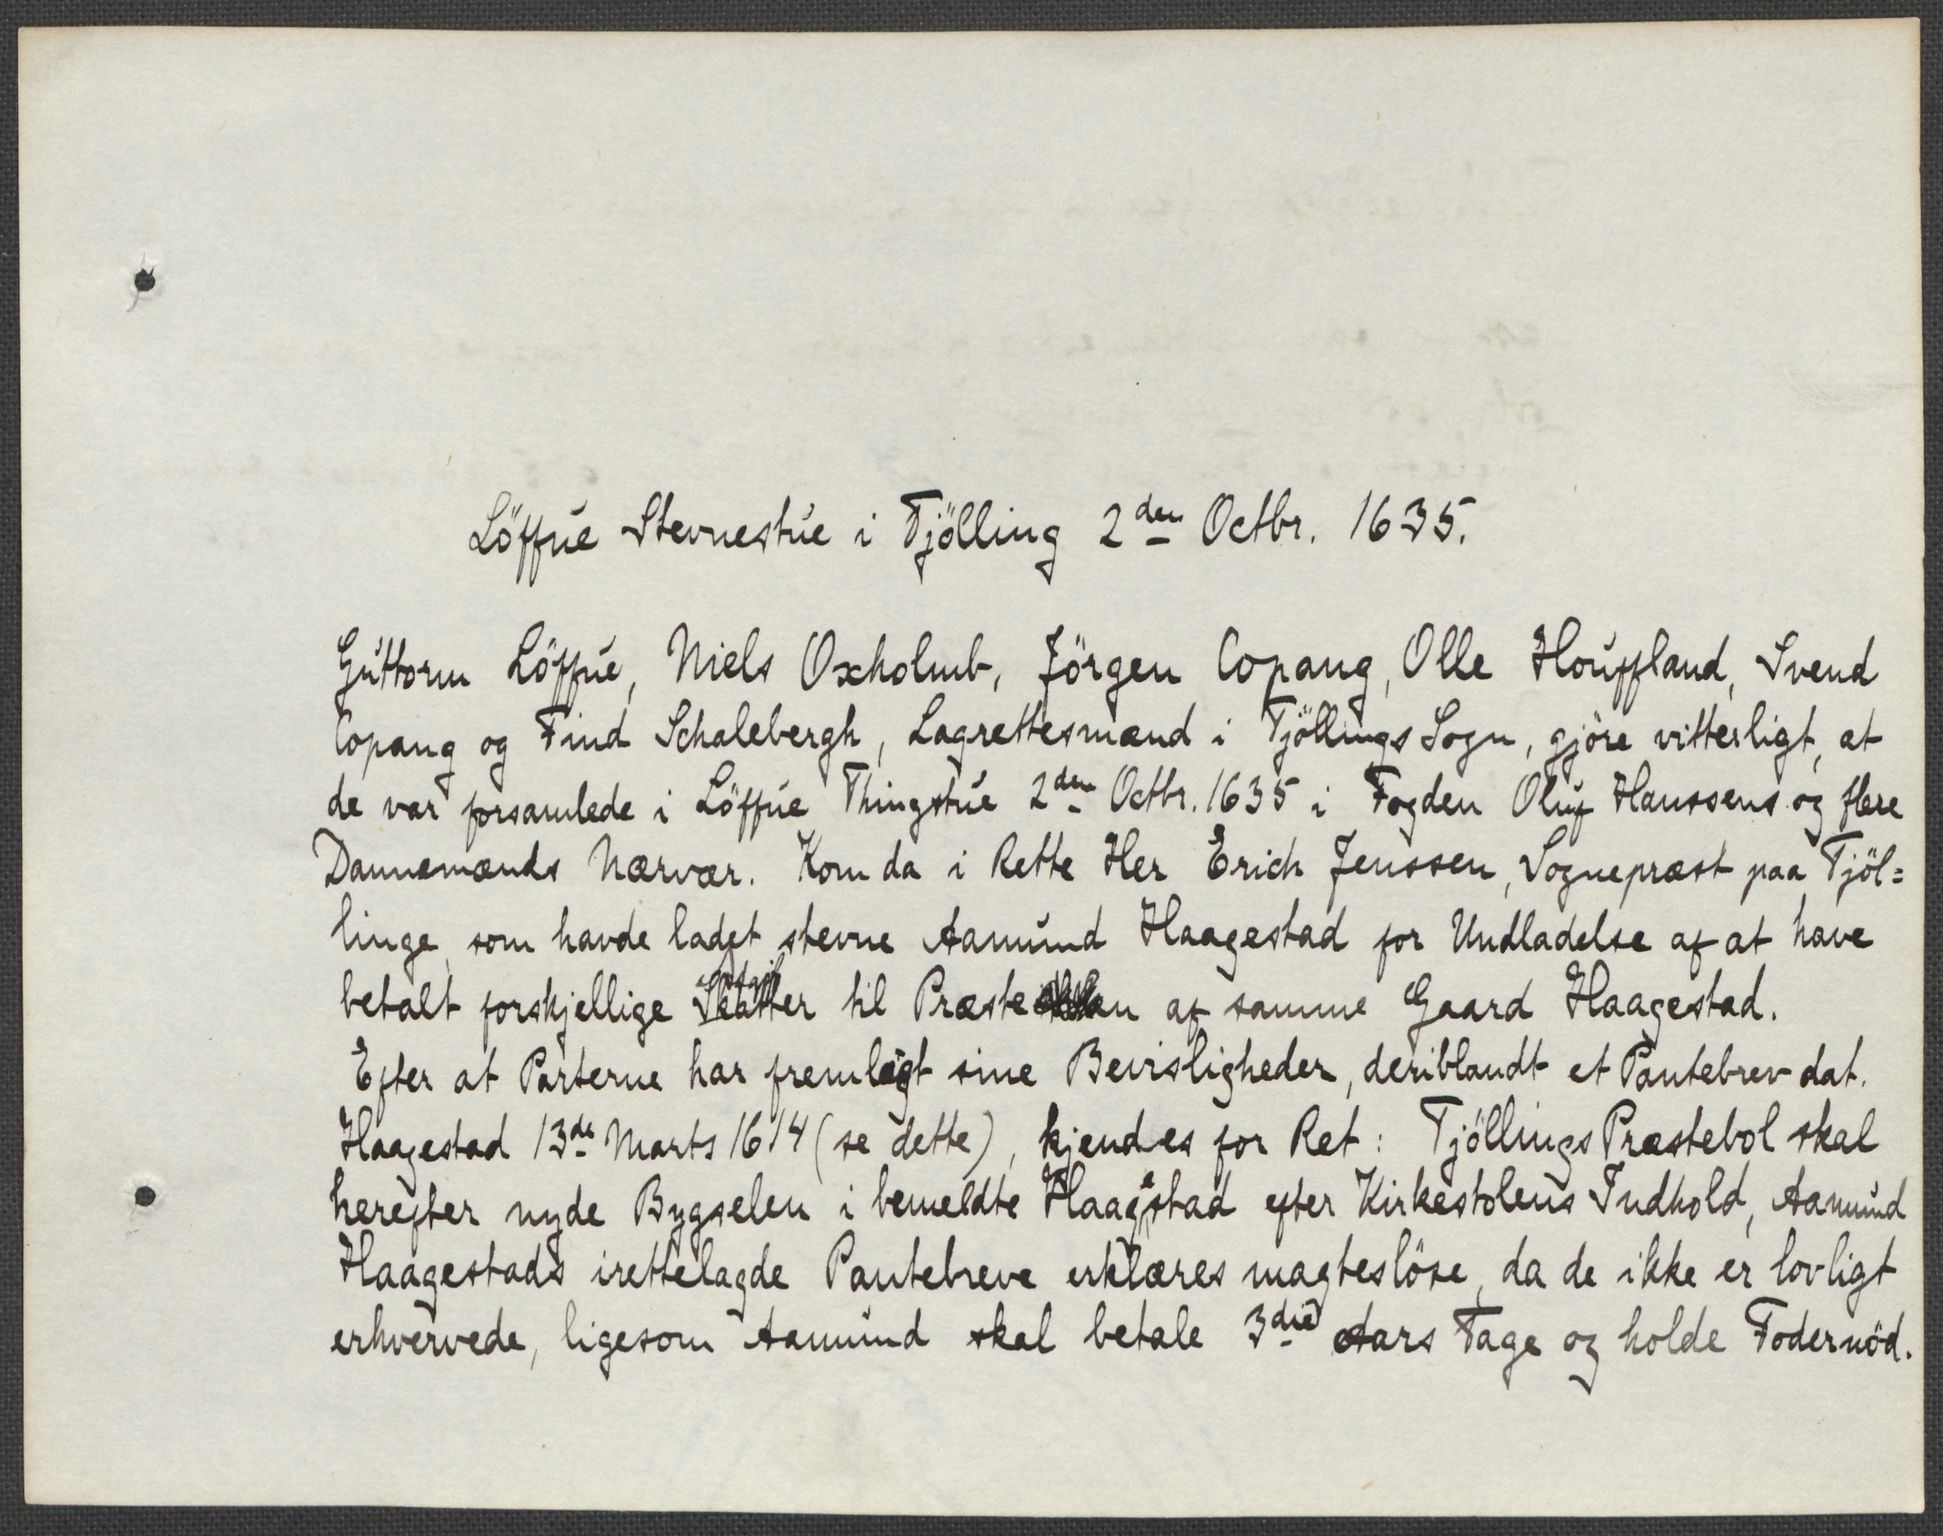 Löffue Stevnestue i Tjölling 2den Octbr. 1635.
Guttorm Löffue, Niels Oxholmb, Jörgen Copang, Olle Houffland, Svend
Copang og Find Schalebergh, Lagrettesmænd i Tjöllings Sogn, gjöre vitterligt, at
de var forsamlede i Löffue Thingstue 2den Octbr. 1635 i Fogden Oluf Hanssens og flere
Dannemænds Nærvær. Kom da i Rette Her Erich Jenssen, Sognepræst paa Tjöl=
linge, som havde ladet stevne Aamund Haagestad for Undladelse af at have
betalt forskjellige til Præsten af samme Gaard Haagestad.
Efter at Parterne har fremlagt sine Bevisligheder, deriblandt et Pantebrev dat.
Haagestad 13de Marts 1614 (se dette), kjendes for Ret: Tjöllings Præstebol skal
herefter nyde Bygselen i bemeldte Haagestad efter Kirkestolens Indhold, Aamund
Haagestads irettelagde Pantebreve erklæres magteslöse, da de ikke er lovligt
erhvervede, ligesom Aamund skal betale 3die Aars Tage og holde Fodernöd.